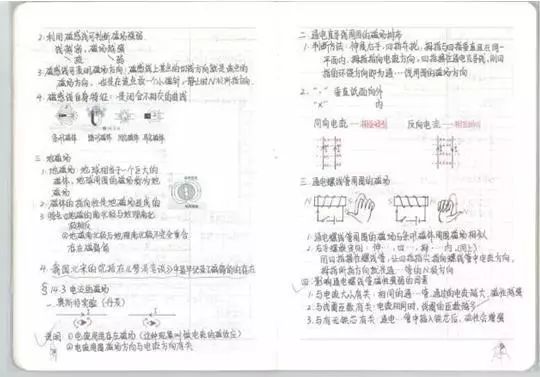 2. 利用磁感线可判断磁场强弱
线密的,磁场越强
疏 弱
3. 磁感线可表明磁场方向:磁感线上某点的切线方向就是该点的
磁场方向,也是在该点放一个小磁针,静止时N极所指方向
4. 磁感线自身特征:是闭合不相交的曲线
条形磁体 蹄形磁体
三. 地磁场
1. 地磁场:地球相当于一个巨大的
磁体,地球周围的磁场称为地
磁场
2. 磁体的指向性是地磁场造成的
3. 特点:①地磁的南北极与地理南北
极相反
②地磁南北极与地理南北极不完全重合
存在磁偏角
4. 我国北宋的沈括在《梦溪笔谈》中最早记录了磁偏角的存在
§14.3 电流的磁场
一. 奥斯特实验(丹麦)
说明:①电流周围存在磁场(这种现象叫做电流的磁效应)
②电流周围磁场方向与电流方向有关
二. 通电直导线周围的磁场分布
1. 判断方法:伸展右手,四指弯曲,拇指与四指垂直且在同一
平面内,拇指指向电流方向,四指握住通电直导线,则四
指的环绕方向即为通…线周围的磁场方向
2. "·" 垂直纸面向外
"×" 内
同向电流— 反向电流—
三. 通电螺线管周围的磁场
N S S N
1. 通电螺线管周围的磁场与条形磁体周围磁场相似
2. 右手螺旋定则:伸…,四…,拇…内,(同上)
用四指握螺线管,让四指指尖指向螺线管中电流方向,
拇指所指方向就是通…管的N极方向
四. 影响通电螺线管磁性强弱的因素
1. 与电流大小有关:相同的通…管,通过的电流越大,磁性越强
2. 与线圈匝数有关:电流相同时,线圈的匝数越多
3. 与有无铁芯有关:通电…管中插入铁芯后,磁性会增强